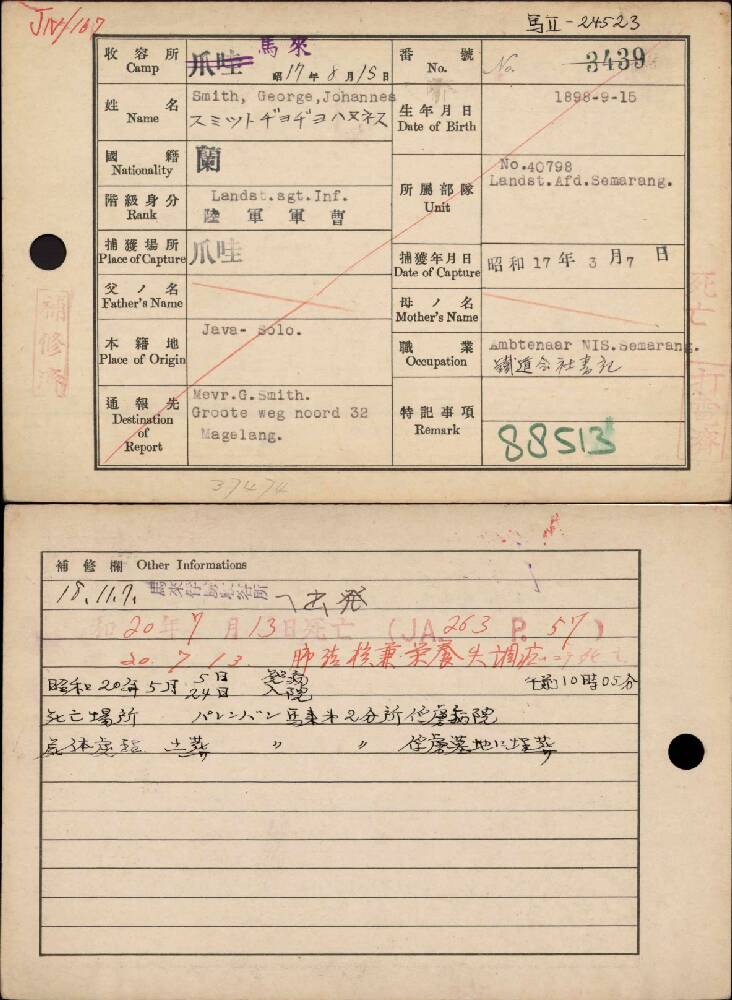 JN/167
馬II-24523
收容所 Camp 爪哇 馬來 昭17年8月15日
番號 No. No. 3439
姓名 Name Smith, George,Johannes
スミツト ヂヨヂヨ ハヌネス
生年月日 Date of Birth 1898-9-15
國籍 Nationality 蘭
所屬部隊 Unit No.40798
Landst.Afd.Semarang.
階級身分 Rank Landst.sgt.Inf.
陸軍軍曹
捕獲場所 Place of Capture 爪哇
捕獲年月日 Date of Capture 昭和17年3月7日
父ノ名 Father's Name
母ノ名 Mother's Name
本籍地 Place of Origin Java- Solo.
職業 Occupation Ambtenaar NIS.Semarang.
鐵道会社書記
通報先 Destination of Report Mevr.G.Smith.
Groote weg noord 32
Magelang.
特記事項 Remark 88513
補修濟
死亡
訂濟
37474
補修欄 Other Informations
18.11.7. 馬來俘虜收容所 へ出発
和20年7月13日死亡 (JA.263 P.57)
20.7.13. 肺結核兼栄養失調症
昭和20年5月5日発病 24日入院 午前10時05分
死亡場所 パレンバン馬来第2分所俘虜病院
死体處理 土葬 〃 〃 俘虜墓地に埋葬